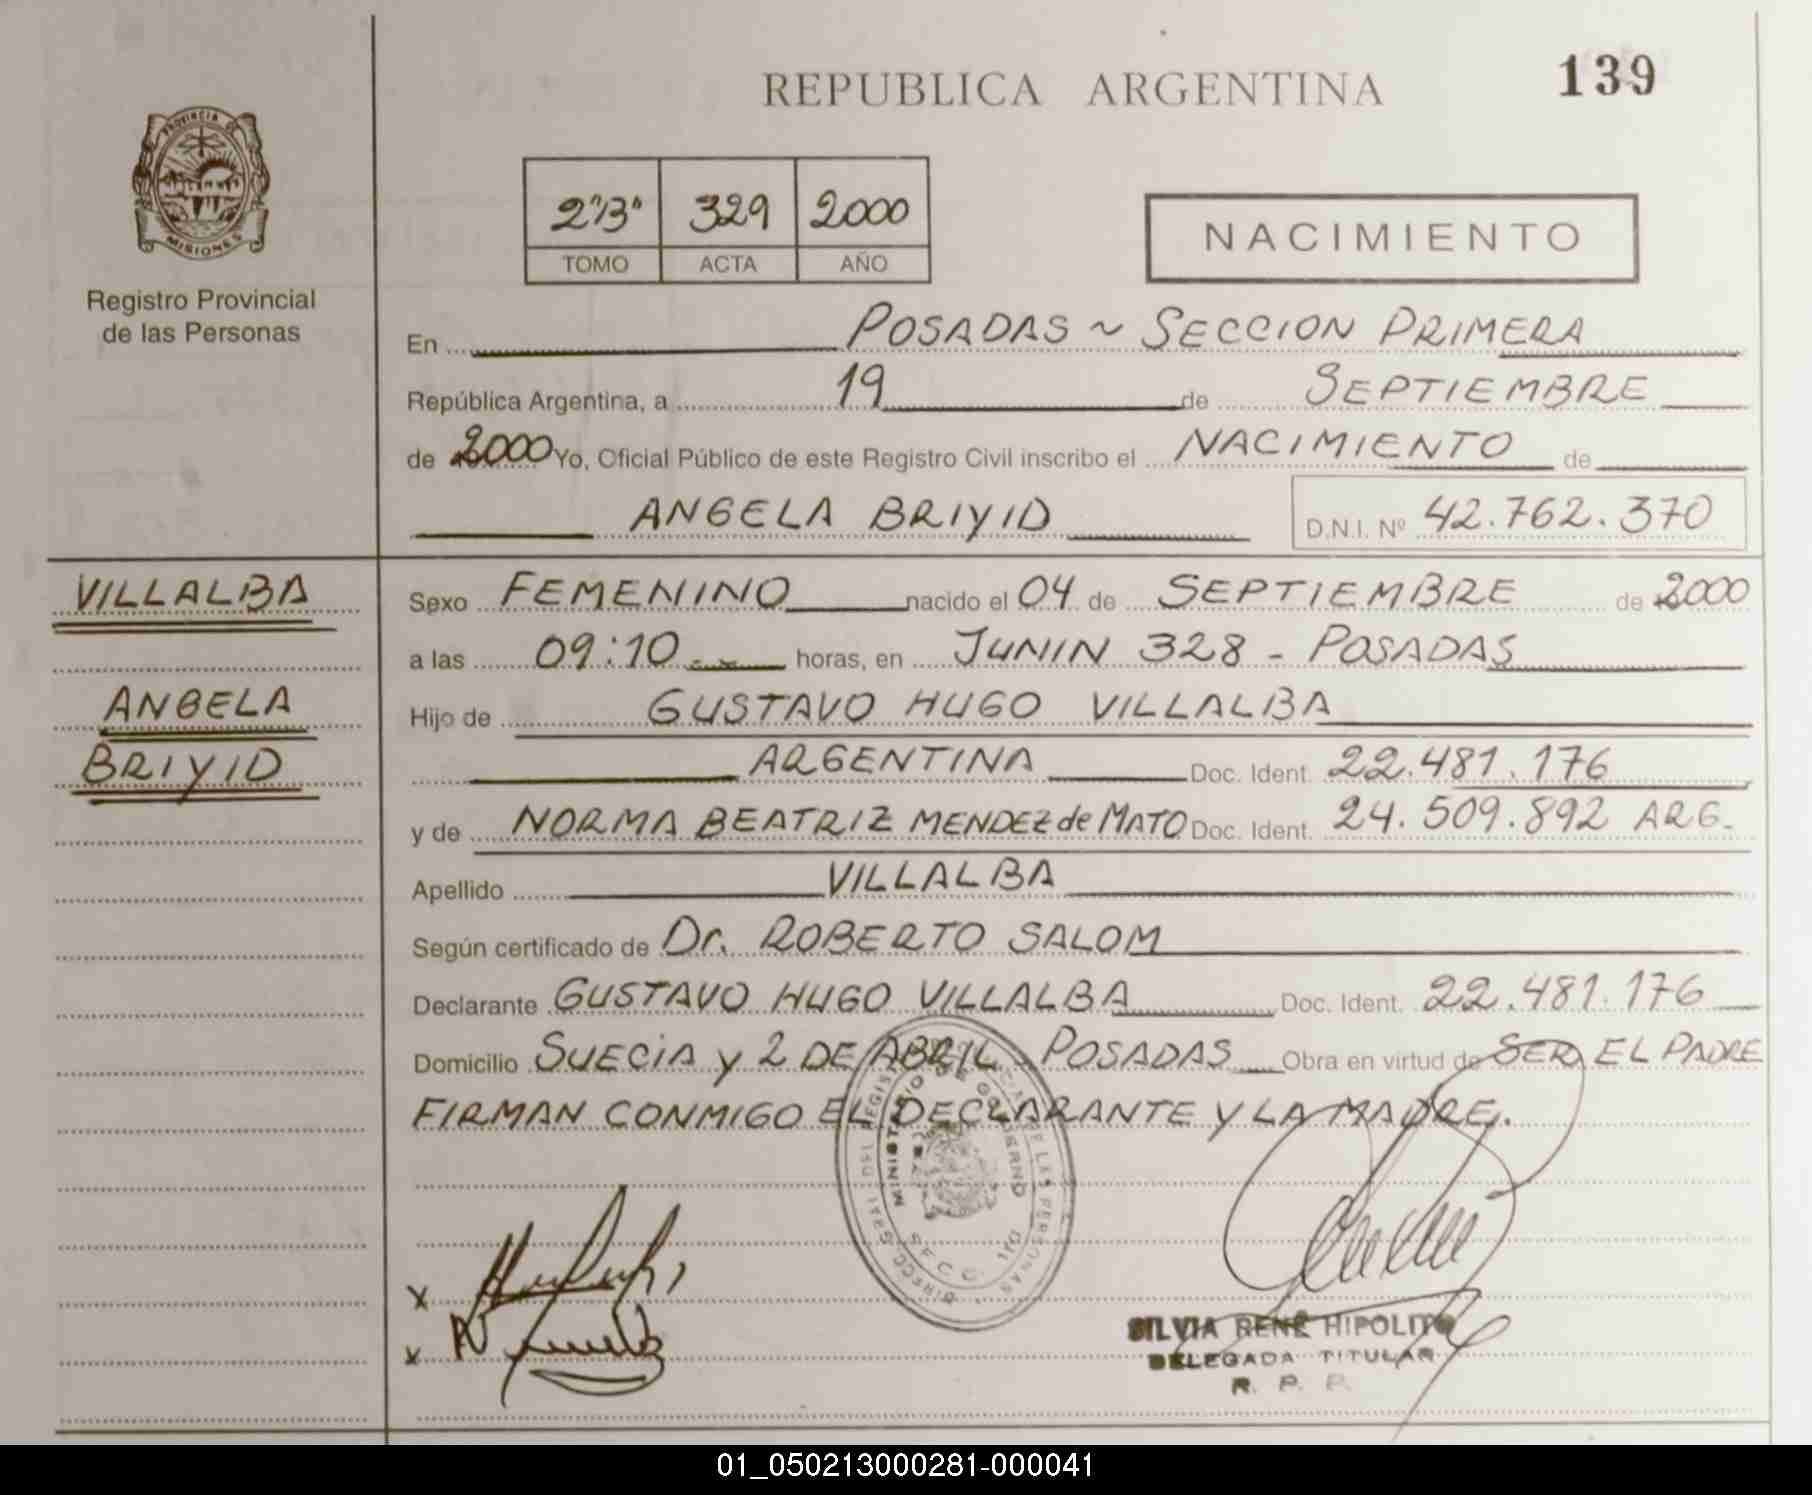 REPUBLICA ARGENTINA
139
PROVINCIA DE
MISIONES
Registro Provincial
de las Personas
2"B" 329 2000
TOMO ACTA AÑO
NACIMIENTO
En POSADAS ~ SECCION PRIMERA
República Argentina, a 19 de SEPTIEMBRE
de 2000 Yo, Oficial Público de este Registro Civil inscribo el NACIMIENTO de
ANGELA BRIYID D.N.I. Nº 42.762.370
VILLALBA
ANGELA
BRIYID
Sexo FEMENINO nacido el 04 de SEPTIEMBRE de 2000
a las 09:10 horas, en JUNIN 328 - POSADAS
Hijo de GUSTAVO HUGO VILLALBA
ARGENTINA Doc. Ident. 22.481.176
y de NORMA BEATRIZ MENDEZ de MATO Doc. Ident. 24.509.892 ARG.
Apellido VILLALBA
Según certificado de Dr. ROBERTO SALOM
Declarante GUSTAVO HUGO VILLALBA Doc. Ident. 22.481.176
Domicilio SUECIA y 2 DE ABRIL - POSADAS Obra en virtud de SER EL PADRE
FIRMAN CONMIGO EL DECLARANTE Y LA MADRE.
MINISTERIO DE GOBIERNO
X
X
SILVIA RENÉ HIPOLITO
DELEGADA TITULAR
R. P. P.
01_050213000281-000041